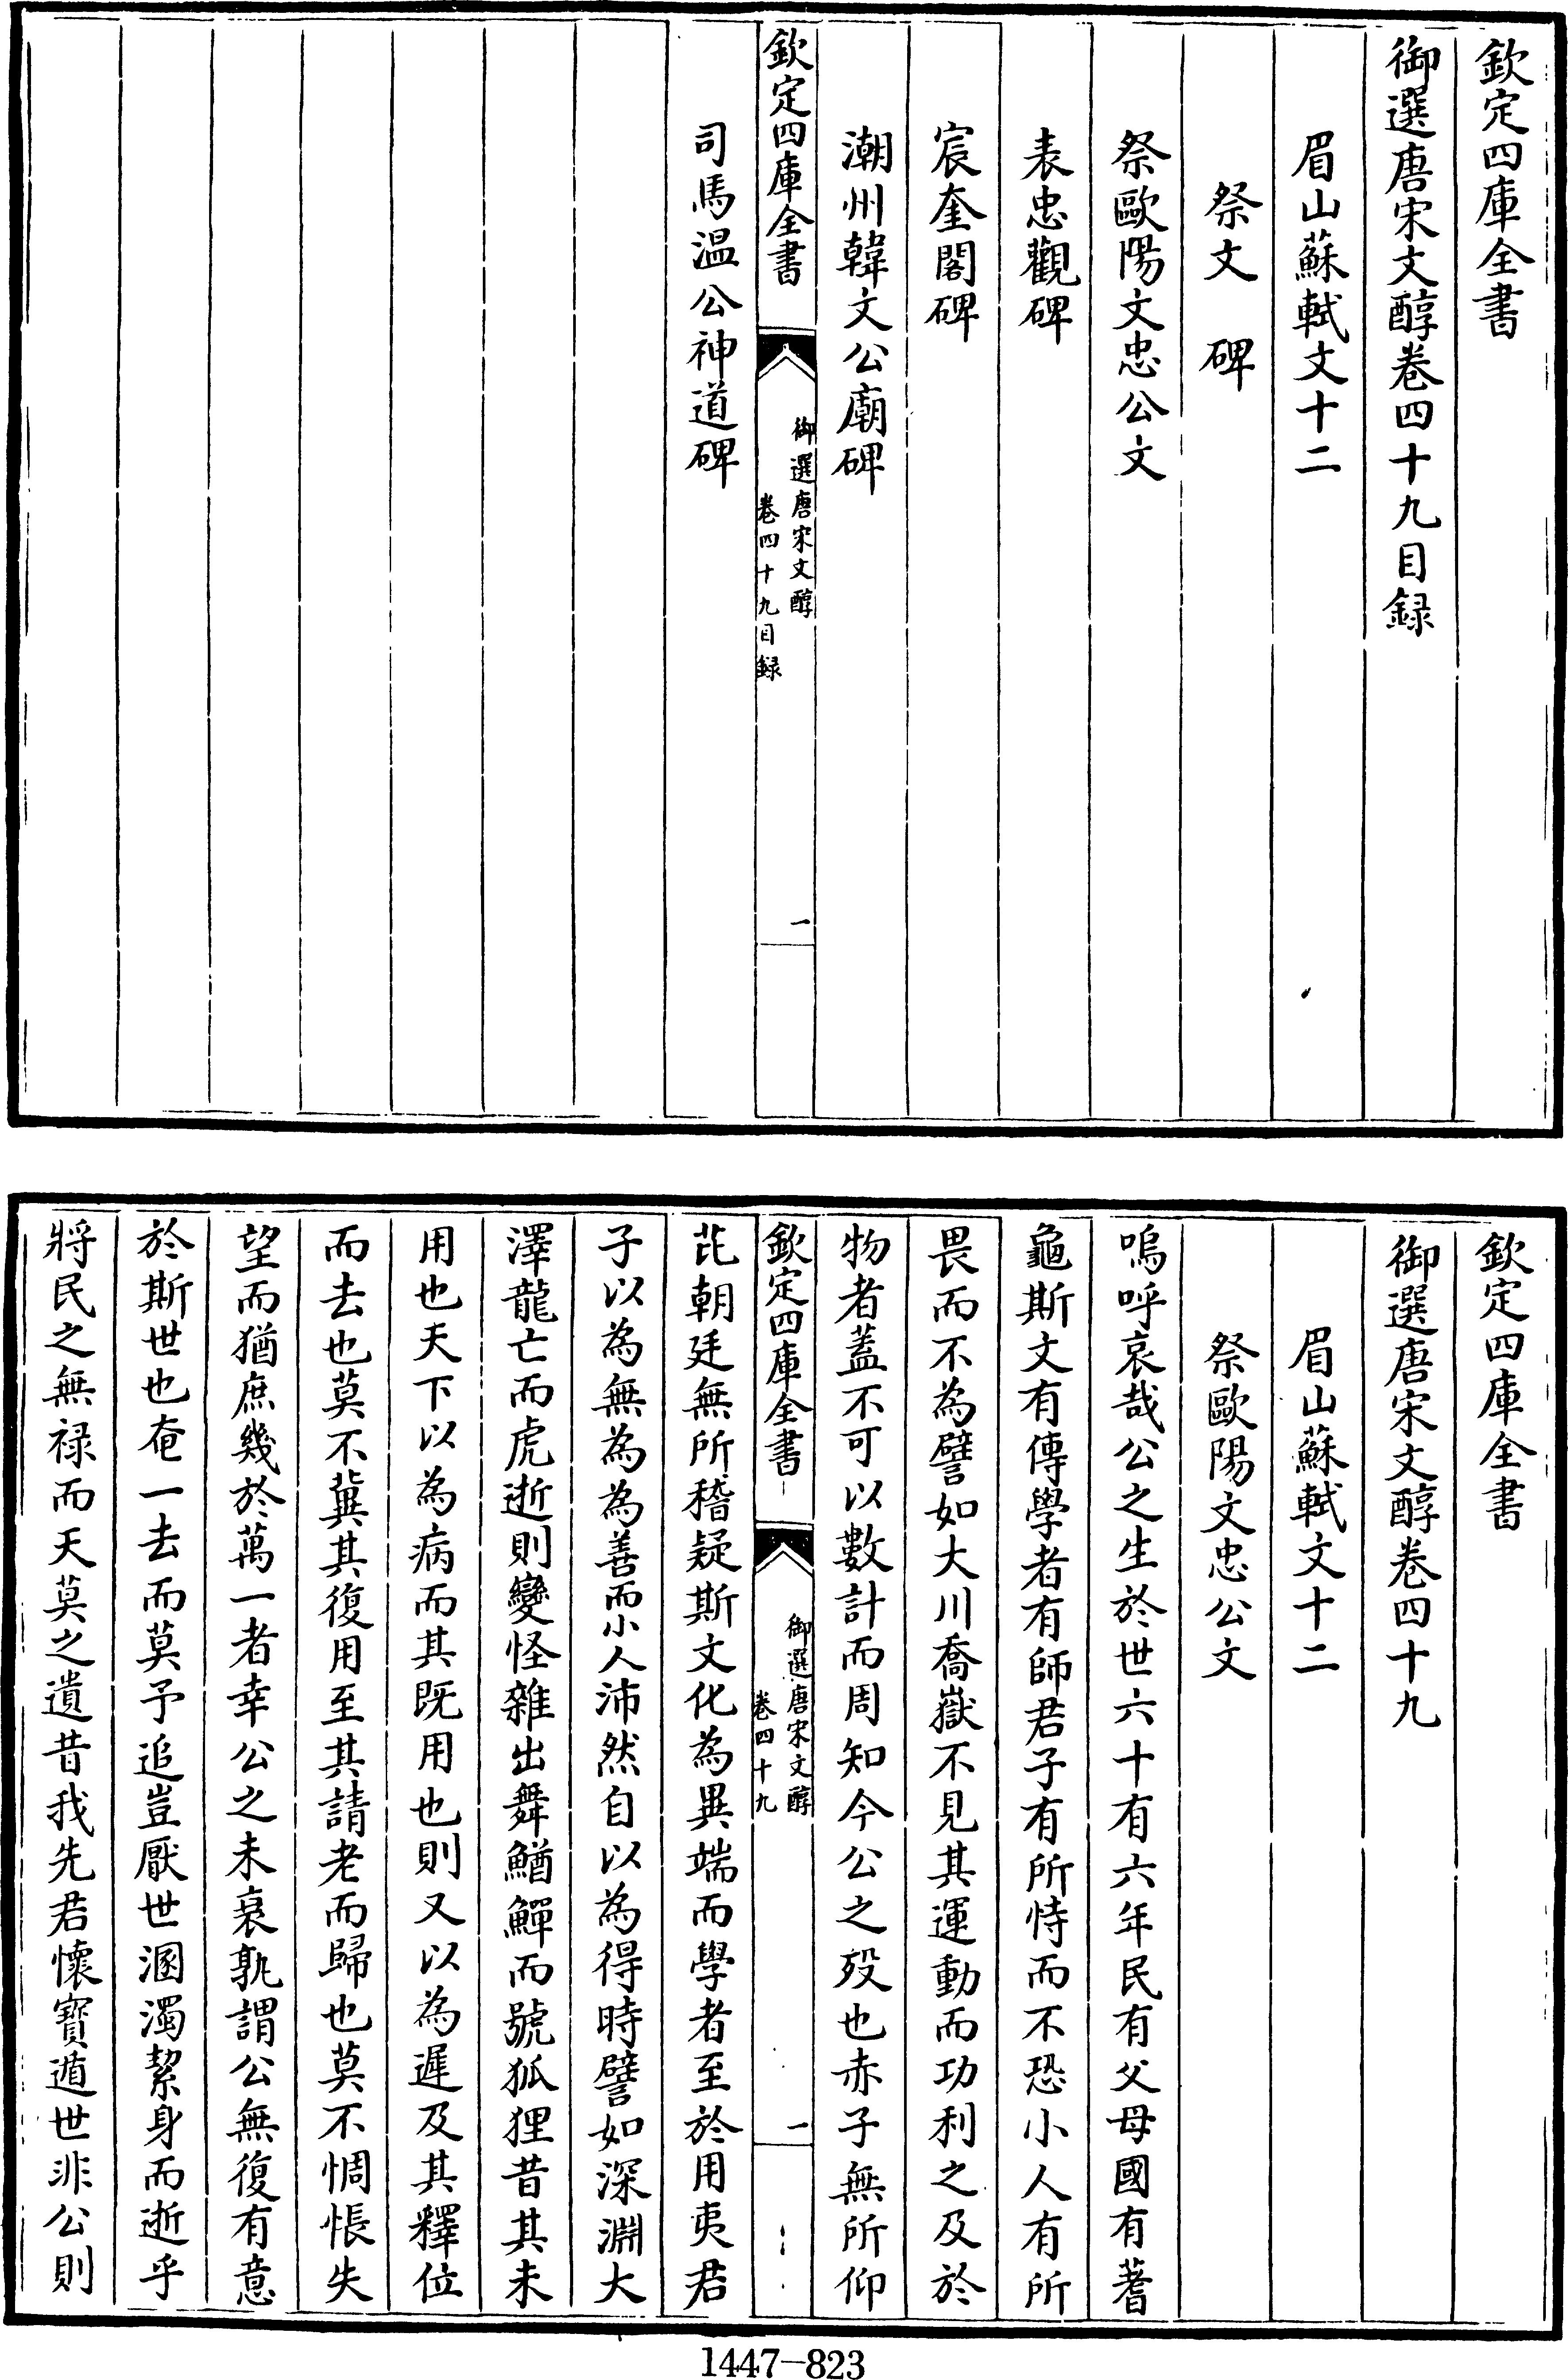 欽定四庫全書
御選唐宋文醇卷四十九目録
眉山蘇軾文十二
祭文　碑
祭歐陽文忠公文
表忠觀碑
宸奎閣碑
潮州韓文公廟碑
欽定四庫全書
御選唐宋文醇
卷四十九目録
一
司馬温公神道碑
欽定四庫全書
御選唐宋文醇卷四十九
眉山蘇軾文十二
祭歐陽文忠公文
嗚呼哀哉公之生於世六十有六年民有父母國有蓍
龜斯文有傳學者有師君子有所恃而不恐小人有所
畏而不為譬如大川喬嶽不見其運動而功利之及於
物者蓋不可以數計而周知今公之殁也赤子無所仰
欽定四庫全書
御選唐宋文醇
卷四十九
一
芘朝廷無所稽疑斯文化為異端而學者至於用夷君
子以為無為為善而小人沛然自以為得時譬如深淵大
澤龍亡而虎逝則變怪雜出舞鰌鱓而號狐狸昔其未
用也天下以為病而其既用也則又以為遲及其釋位
而去也莫不冀其復用至其請老而歸也莫不惆悵失
望而猶庶幾於萬一者幸公之未衰孰謂公無復有意
於斯世也奄一去而莫予追豈厭世溷濁絜身而逝乎
將民之無禄而天莫之遺昔我先君懷寶遁世非公則
1447-823